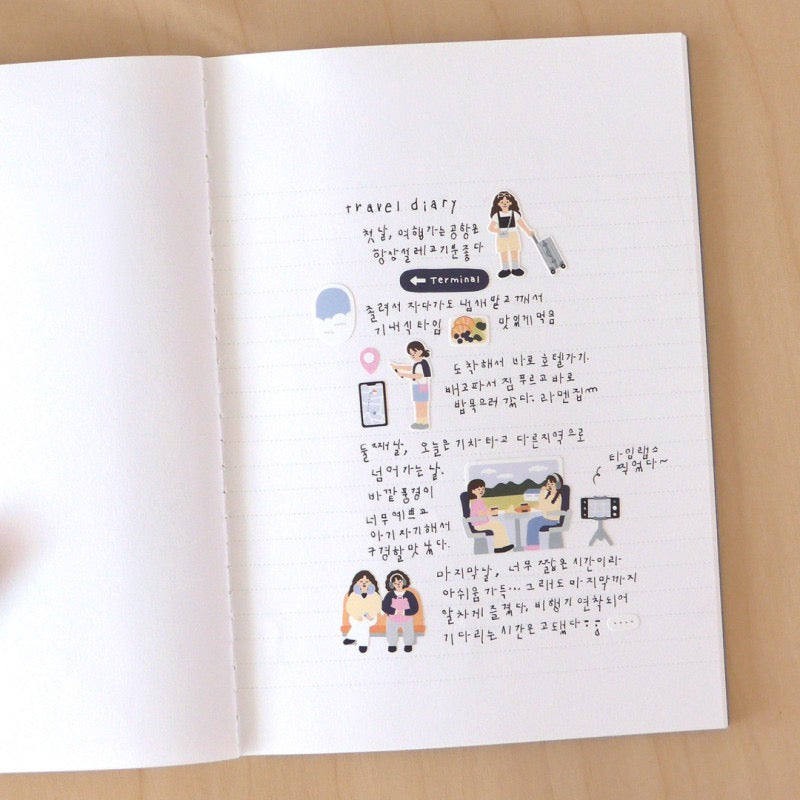 travel diary
첫날, 여행가는 공항은
항상 설레고 기분 좋다
← Terminal
졸려서 자다가도 냄새 맡고 깨서
기내식 타임 맛있게 먹음
도착해서 바로 호텔가기.
배고파서 짐 푸르고 바로
밥 먹으러 갔다. 라멘집
둘째날, 오늘은 기차타고 다른지역으로
넘어가는 날.
바깥 풍경이
너무 예쁘고
아기자기해서
구경할맛 났다.
타임랩스
찍었다~
마지막날, 너무 짧은 시간이라
아쉬움 가득... 그래도 마지막까지
알차게 즐겼다. 비행기 연착되어
기다리는 시간은 고됐다
....